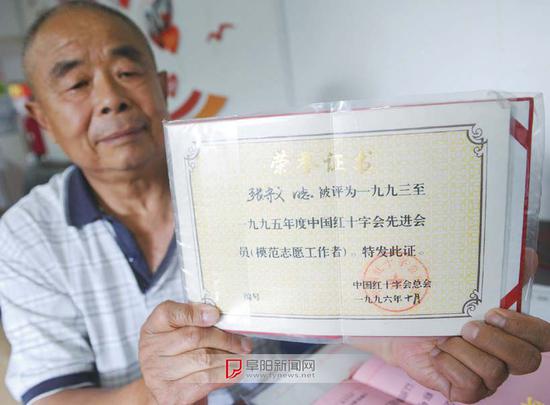 荣誉证书
被评为一九九三至
一九九五年度中国红十字会先进会
员(模范志愿工作者)。特发此证。
编号
中国红十字会总会
一九九六年十月
阜阳新闻网
www.fynews.net